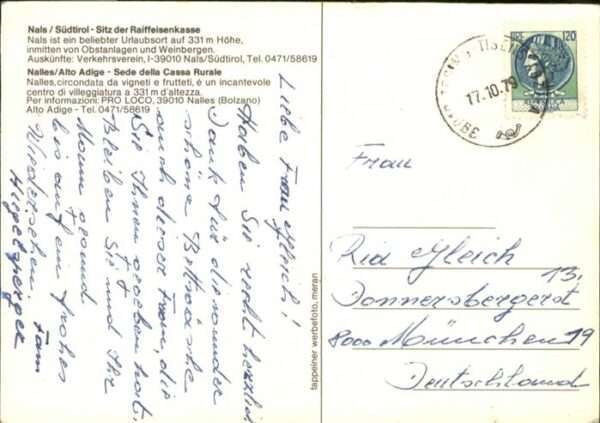 Nals / Südtirol - Sitz der Raiffeisenkasse
Nals ist ein beliebter Urlaubsort auf 331 m Höhe,
inmitten von Obstanlagen und Weinbergen.
Auskünfte: Verkehrsverein, I-39010 Nals/Südtirol, Tel. 0471/58619
Nalles/Alto Adige - Sede della Cassa Rurale
Nalles, circondata da vigneti e frutteti, é un incantevole
centro di villeggiatura a 331 m d'altezza.
Per informazioni: PRO LOCO, 39010 Nalles (Bolzano)
Alto Adige - Tel. 0471/58619
Liebe Frau Gleich!
Haben Sie recht herzlich
Dank für die wunder
schöne Bettwäsche
auch dieser Frau, die
Sie Ihnen gegeben hat.
Bleiben Sie und Ihr
Mann gesund
bis auf ein frohes
Wiedersehen. Fam
tappeiner werbefoto, meran
17.10.79
120
Frau
Ria Gleich
Donnersbergerst 13.
8000 München 19
Deutschland